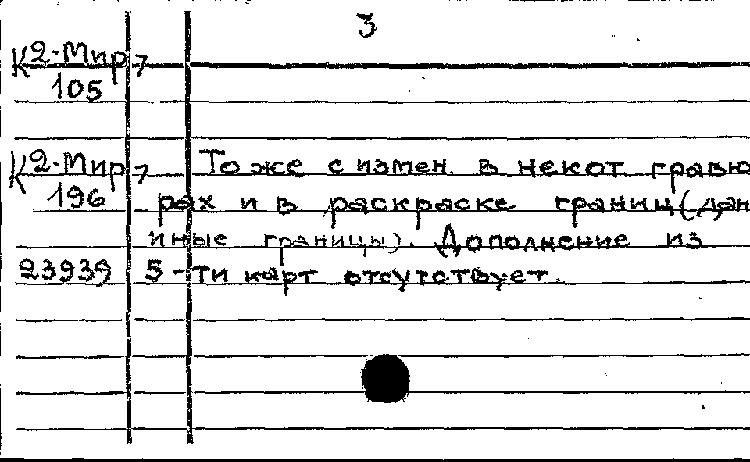 3
К 2-Мир 7
105
К 2-Мир 7 То же с измен. в некот гравю
196 рах и в раскраске границ (дан
иные границы). Дополнение из
23939 5-ти карт отсутствует.